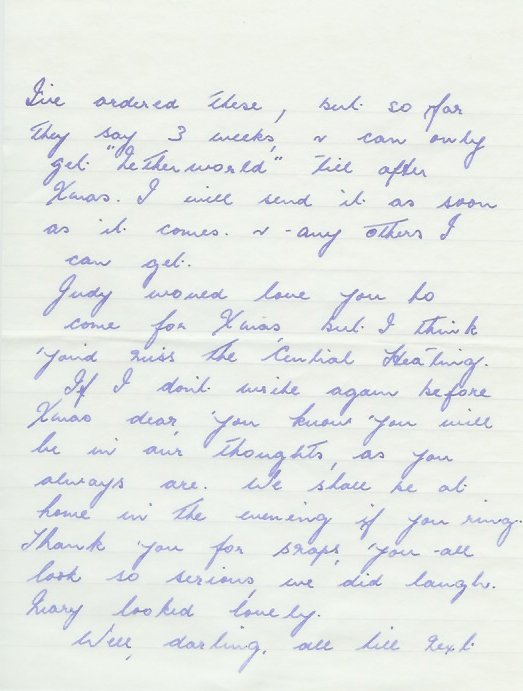 I've ordered these, but so far
they say 3 weeks, & can only
get "Netherworld" till after
Xmas. I will send it as soon
as it comes. & any others I
can get.
Judy would love you to
come for Xmas, but I think
you'd miss the Central Heating.
If I don't write again before
Xmas dear, you know you will
be in our thoughts, as you
always are. We shall be at
home in the evening if you ring.
Thank you for snaps, you all
look so serious, we did laugh.
Mary looked lovely.
Well, darling, all till next